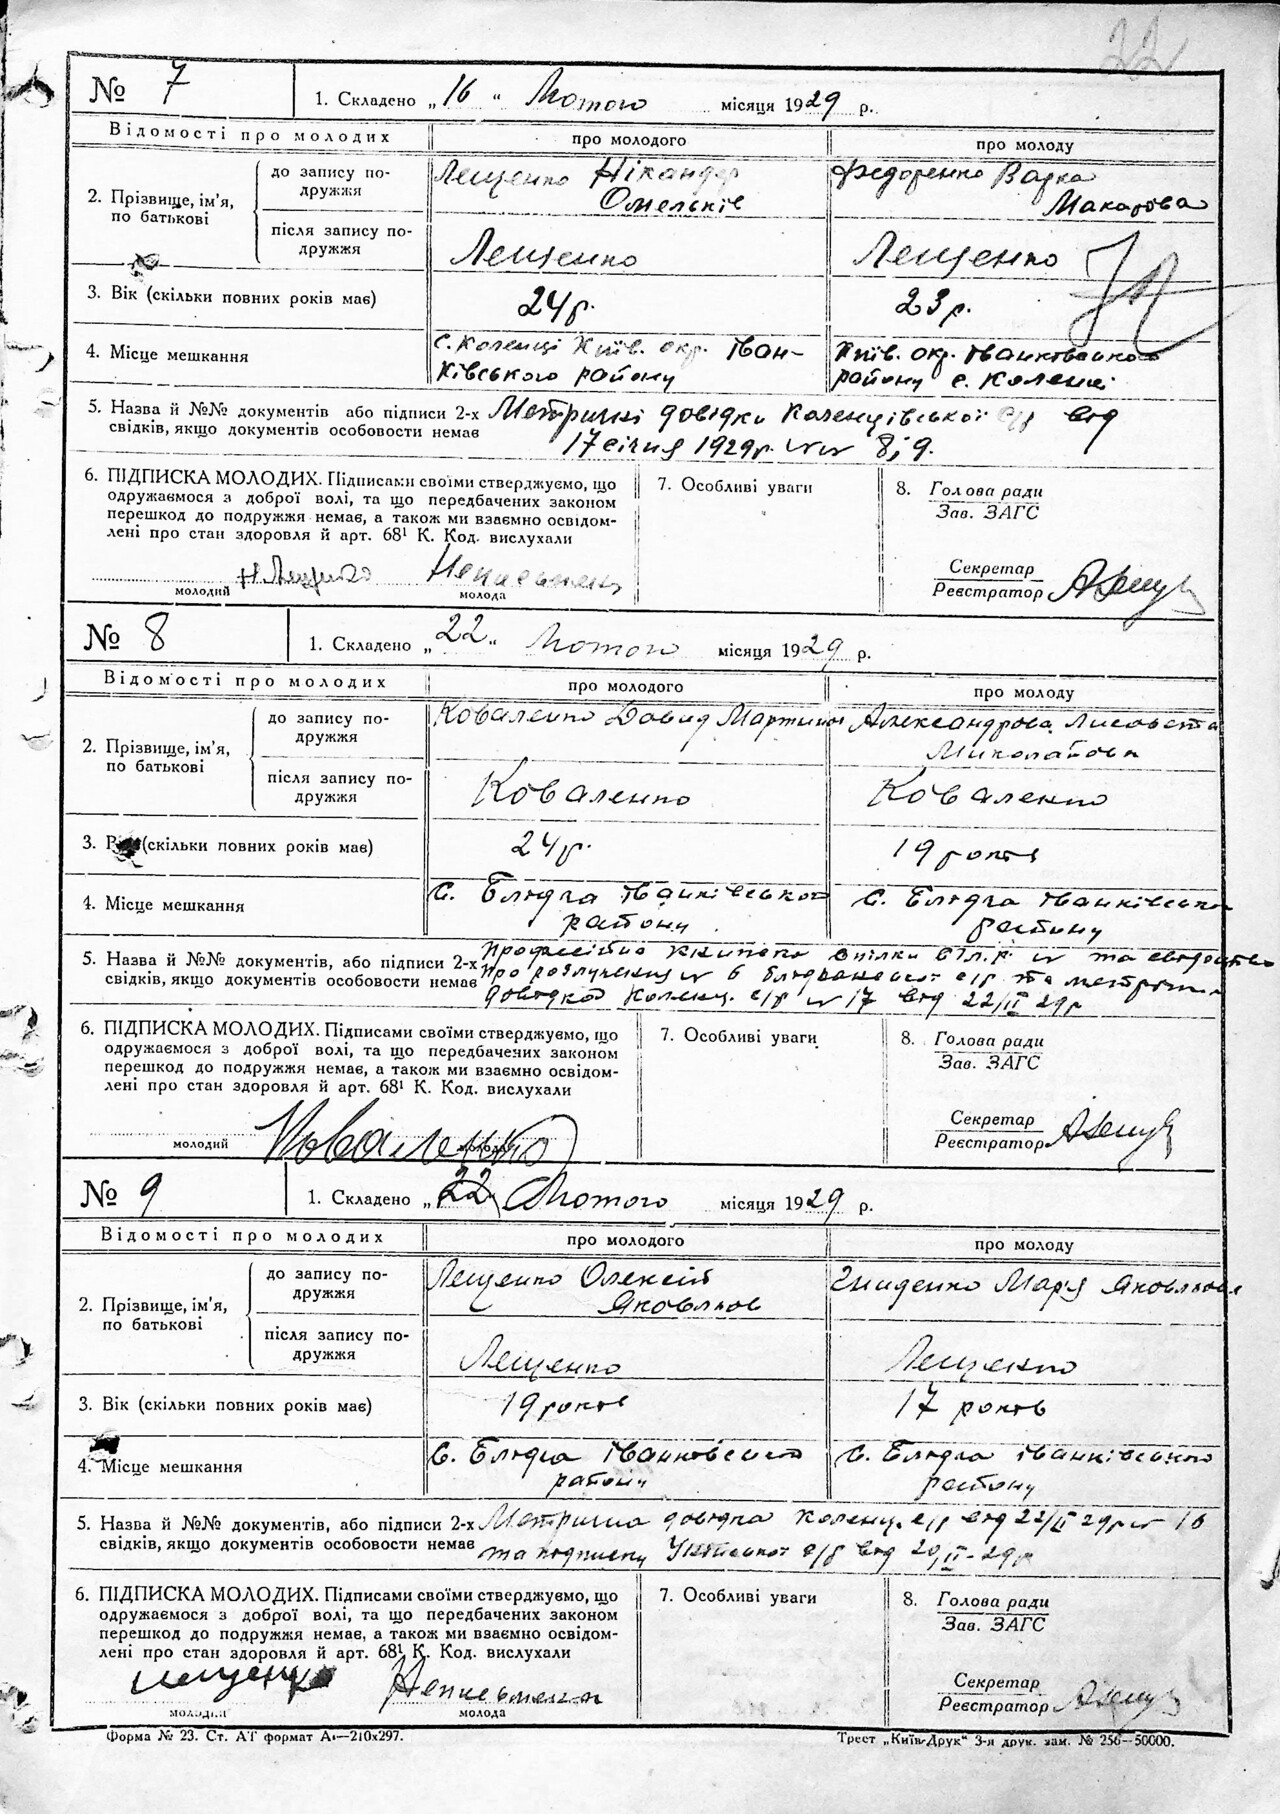 22
№ 7 1. Складено „16“ Лютого місяця 1929 р.
Відомості про молодих про молодого про молоду
2. Прізвище, ім'я, по батькові
до запису подружжя Лещенко Нікандер Омельків Федоренко Варка Макарова
після запису подружжя Лещенко Лещенко
3. Вік (скільки повних років має) 24 р. 23 р.
4. Місце мешкання с. Коленці Київ. окр. Іван- Київ. окр. Іванковського
ківського району району с. Коленці
5. Назва й №№ документів або підписи 2-х Метричні довідки Коленцівської с/р від
свідків, якщо документів особовости немає 17 січня 1929 р. №№ 8 і 9.
6. ПІДПИСКА МОЛОДИХ. Підписами своїми стверджуємо, що 7. Особливі уваги 8. Голова ради
одружаємося з доброї волі, та що передбачених законом Зав. ЗАГС
перешкод до подружжя немає, а також ми взаємно освідом-
лені про стан здоровля й арт. 68¹ К. Код. вислухали
Секретар
Н Лещенко Неписьменна Реєстратор
молодий молода
№ 8 1. Складено „22“ Лютого місяця 1929 р.
Відомості про молодих про молодого про молоду
2. Прізвище, ім'я, по батькові
до запису подружжя Коваленко Давид Мартинов Александрова Лисовета Миколайовна
після запису подружжя Коваленко Коваленко
3. (скільки повних років має) 24 р. 19 років
4. Місце мешкання с. Блидча Іванківського с. Блидча Іванківськ
району району
5. Назва й №№ документів, або підписи 2-х Професійна книжка спілки № та
свідків, якщо документів особовости немає про розлучення № 6 с/р та метрична
довідка Коленц. с/р № 17 від 22/II 29 р
6. ПІДПИСКА МОЛОДИХ. Підписами своїми стверджуємо, що 7. Особливі уваги 8. Голова ради
одружаємося з доброї волі, та що передбачених законом Зав. ЗАГС
перешкод до подружжя немає, а також ми взаємно освідом-
лені про стан здоровля й арт. 68¹ К. Код. вислухали
Секретар
молодий Коваленко молода Реєстратор
№ 9 1. Складено „22“ Лютого місяця 1929 р.
Відомості про молодих про молодого про молоду
2. Прізвище, ім'я, по батькові
до запису подружжя Лещенко Олексій Яковлков Гниденко Мар'я Яковлковa
після запису подружжя Лещенко Лещенко
3. Вік (скільки повних років має) 19 років 17 років
4. Місце мешкання с. Блидча Іванковського с. Блидча Іванківського
району району
5. Назва й №№ документів, або підписи 2-х Метрична довідка Коленц. с/р від 22/II 29 р № 16
свідків, якщо документів особовости немає та подписку с/р від 20/II-29 р
6. ПІДПИСКА МОЛОДИХ. Підписами своїми стверджуємо, що 7. Особливі уваги 8. Голова ради
одружаємося з доброї волі, та що передбачених законом Зав. ЗАГС
перешкод до подружжя немає, а також ми взаємно освідом-
лені про стан здоровля й арт. 68¹ К. Код. вислухали
Секретар
Лещенко Неписьменна Реєстратор
молодий молода
Форма № 23. Ст. АТ формат А₄—210x297. Трест „Київ-Друк“ 3-я друк. зам. № 256—50000.